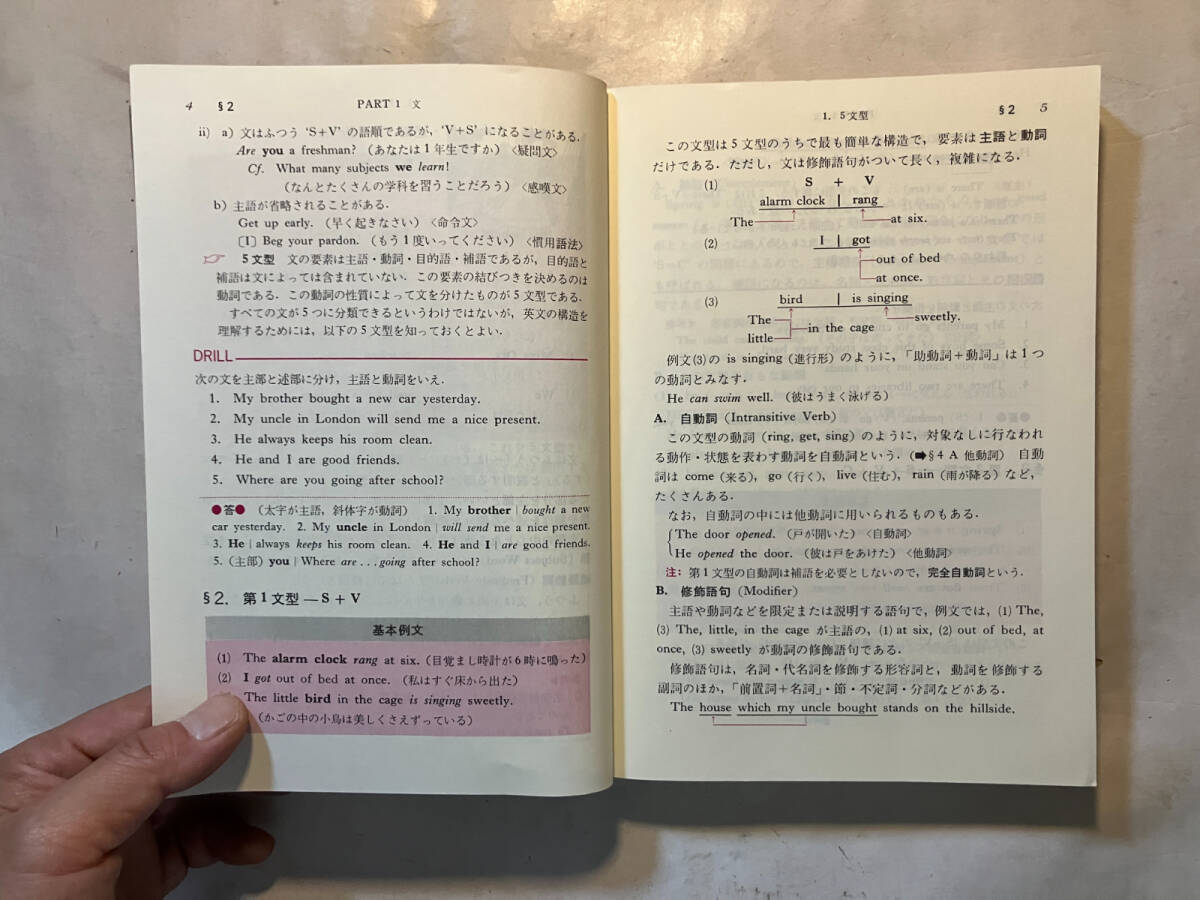 4 §2 PART 1 文
ii) a) 文はふつう ‘S+V’ の語順であるが，‘V+S’ になることがある．
Are you a freshman? （あなたは1年生ですか）〈疑問文〉
Cf. What many subjects we learn!
（なんとたくさんの学科を習うことだろう）〈感嘆文〉
b) 主語が省略されることがある．
Get up early. （早く起きなさい）〈命令文〉
[I] Beg your pardon. （もう1度いってください）〈慣用語法〉
☞ 5文型 文の要素は主語・動詞・目的語・補語であるが，目的語と
補語は文によっては含まれていない．この要素の結びつきを決めるのは
動詞である．この動詞の性質によって文を分けたものが5文型である．
すべての文が5つに分類できるというわけではないが，英文の構造を
理解するためには，以下の5文型を知っておくとよい．
DRILL
次の文を主部と述部に分け，主語と動詞をいえ．
1. My brother bought a new car yesterday.
2. My uncle in London will send me a nice present.
3. He always keeps his room clean.
4. He and I are good friends.
5. Where are you going after school?
●答● （太字が主語，斜体字が動詞） 1. My brother | bought a new
car yesterday. 2. My uncle in London | will send me a nice present.
3. He | always keeps his room clean. 4. He and I | are good friends.
5. （主部）you | Where are . . . going after school?
§2. 第1文型 — S + V
基本例文
(1) The alarm clock rang at six. （目覚まし時計が6時に鳴った）
(2) I got out of bed at once. （私はすぐ床から出た）
The little bird in the cage is singing sweetly.
（かごの中の小鳥は美しくさえずっている）
1. 5文型 §2 5
この文型は5文型のうちで最も簡単な構造で，要素は主語と動詞
だけである．ただし，文は修飾語句がついて長く，複雑になる．
(1) S + V
alarm clock | rang
The at six.
(2) I | got
out of bed
at once.
(3) bird | is singing
The sweetly.
in the cage
little
例文(3)の is singing（進行形）のように，「助動詞＋動詞」は1つ
の動詞とみなす．
He can swim well. （彼はうまく泳げる）
A. 自動詞 (Intransitive Verb)
この文型の動詞 (ring, get, sing) のように，対象なしに行なわれ
る動作・状態を表わす動詞を自動詞という．（➡§4 A 他動詞） 自動
詞は come（来る），go（行く），live（住む），rain（雨が降る）など，
たくさんある．
なお，自動詞の中には他動詞に用いられるものもある．
The door opened. （戸が開いた）〈自動詞〉
He opened the door. （彼は戸をあけた）〈他動詞〉
注： 第1文型の自動詞は補語を必要としないので，完全自動詞という．
B. 修飾語句 (Modifier)
主語や動詞などを限定または説明する語句で，例文では，(1) The,
(3) The, little, in the cage が主語の，(1) at six, (2) out of bed, at
once, (3) sweetly が動詞の修飾語句である．
修飾語句は，名詞・代名詞を修飾する形容詞と，動詞を修飾する
副詞のほか，「前置詞＋名詞」・節・不定詞・分詞などがある．
The house which my uncle bought stands on the hillside.